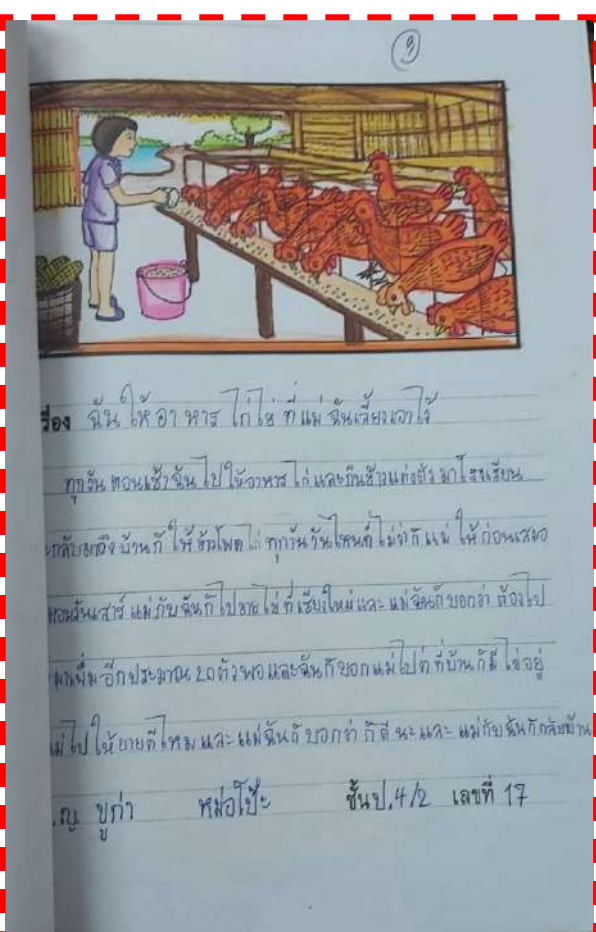 9
รื่อง ฉันให้อาหารไก่ไข่ที่แม่ฉันเลี้ยงเอาไว้
ทุกวันตอนเช้าฉันไปให้อาหารไก่และกินข้าวแต่งตัวมาโรงเรียน
กลับมาถึงบ้านก็ให้ข้าวโพดไก่ทุกวันวันไหนที่ไม่ แม่ให้ก่อนเสมอ
ตอนวันเสาร์แม่กับฉันก็ไปขายไข่ที่เชียงใหม่และแม่ฉันก็บอกว่าต้องไป
มาเพิ่มอีกประมาณ ๖๐ ตัวพอและฉันก็บอกแม่ไป ที่บ้านก็มีไข่อยู่
แม่ไปให้ยายดีไหมและแม่ฉันก็บอกว่าก็ดีนะและแม่กับฉันก็กลับบ้าน
.ญ บูก่า หม่อโป๊ะ ชั้นป.4/2 เลขที่ 17